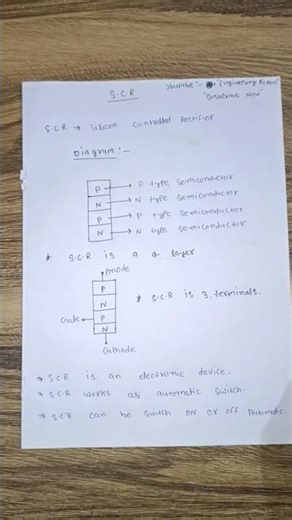 S.C.R
Youtube:- Engineering
"Subscribe Now"
S.C.R → Silicon Controlled Rectifier
Diagram:-
P → P type semiconductor
N → N type semiconductor
P → P type semiconductor
N → N type semiconductor
* S.C.R is a 4 layer
Anode
P
N
* S.C.R is 3 terminals.
Gate
P
N
Cathode
→ S.C.R is an electronic device.
→ S.C.R works as automatic switch.
→ S.C.R can be switch ON or off